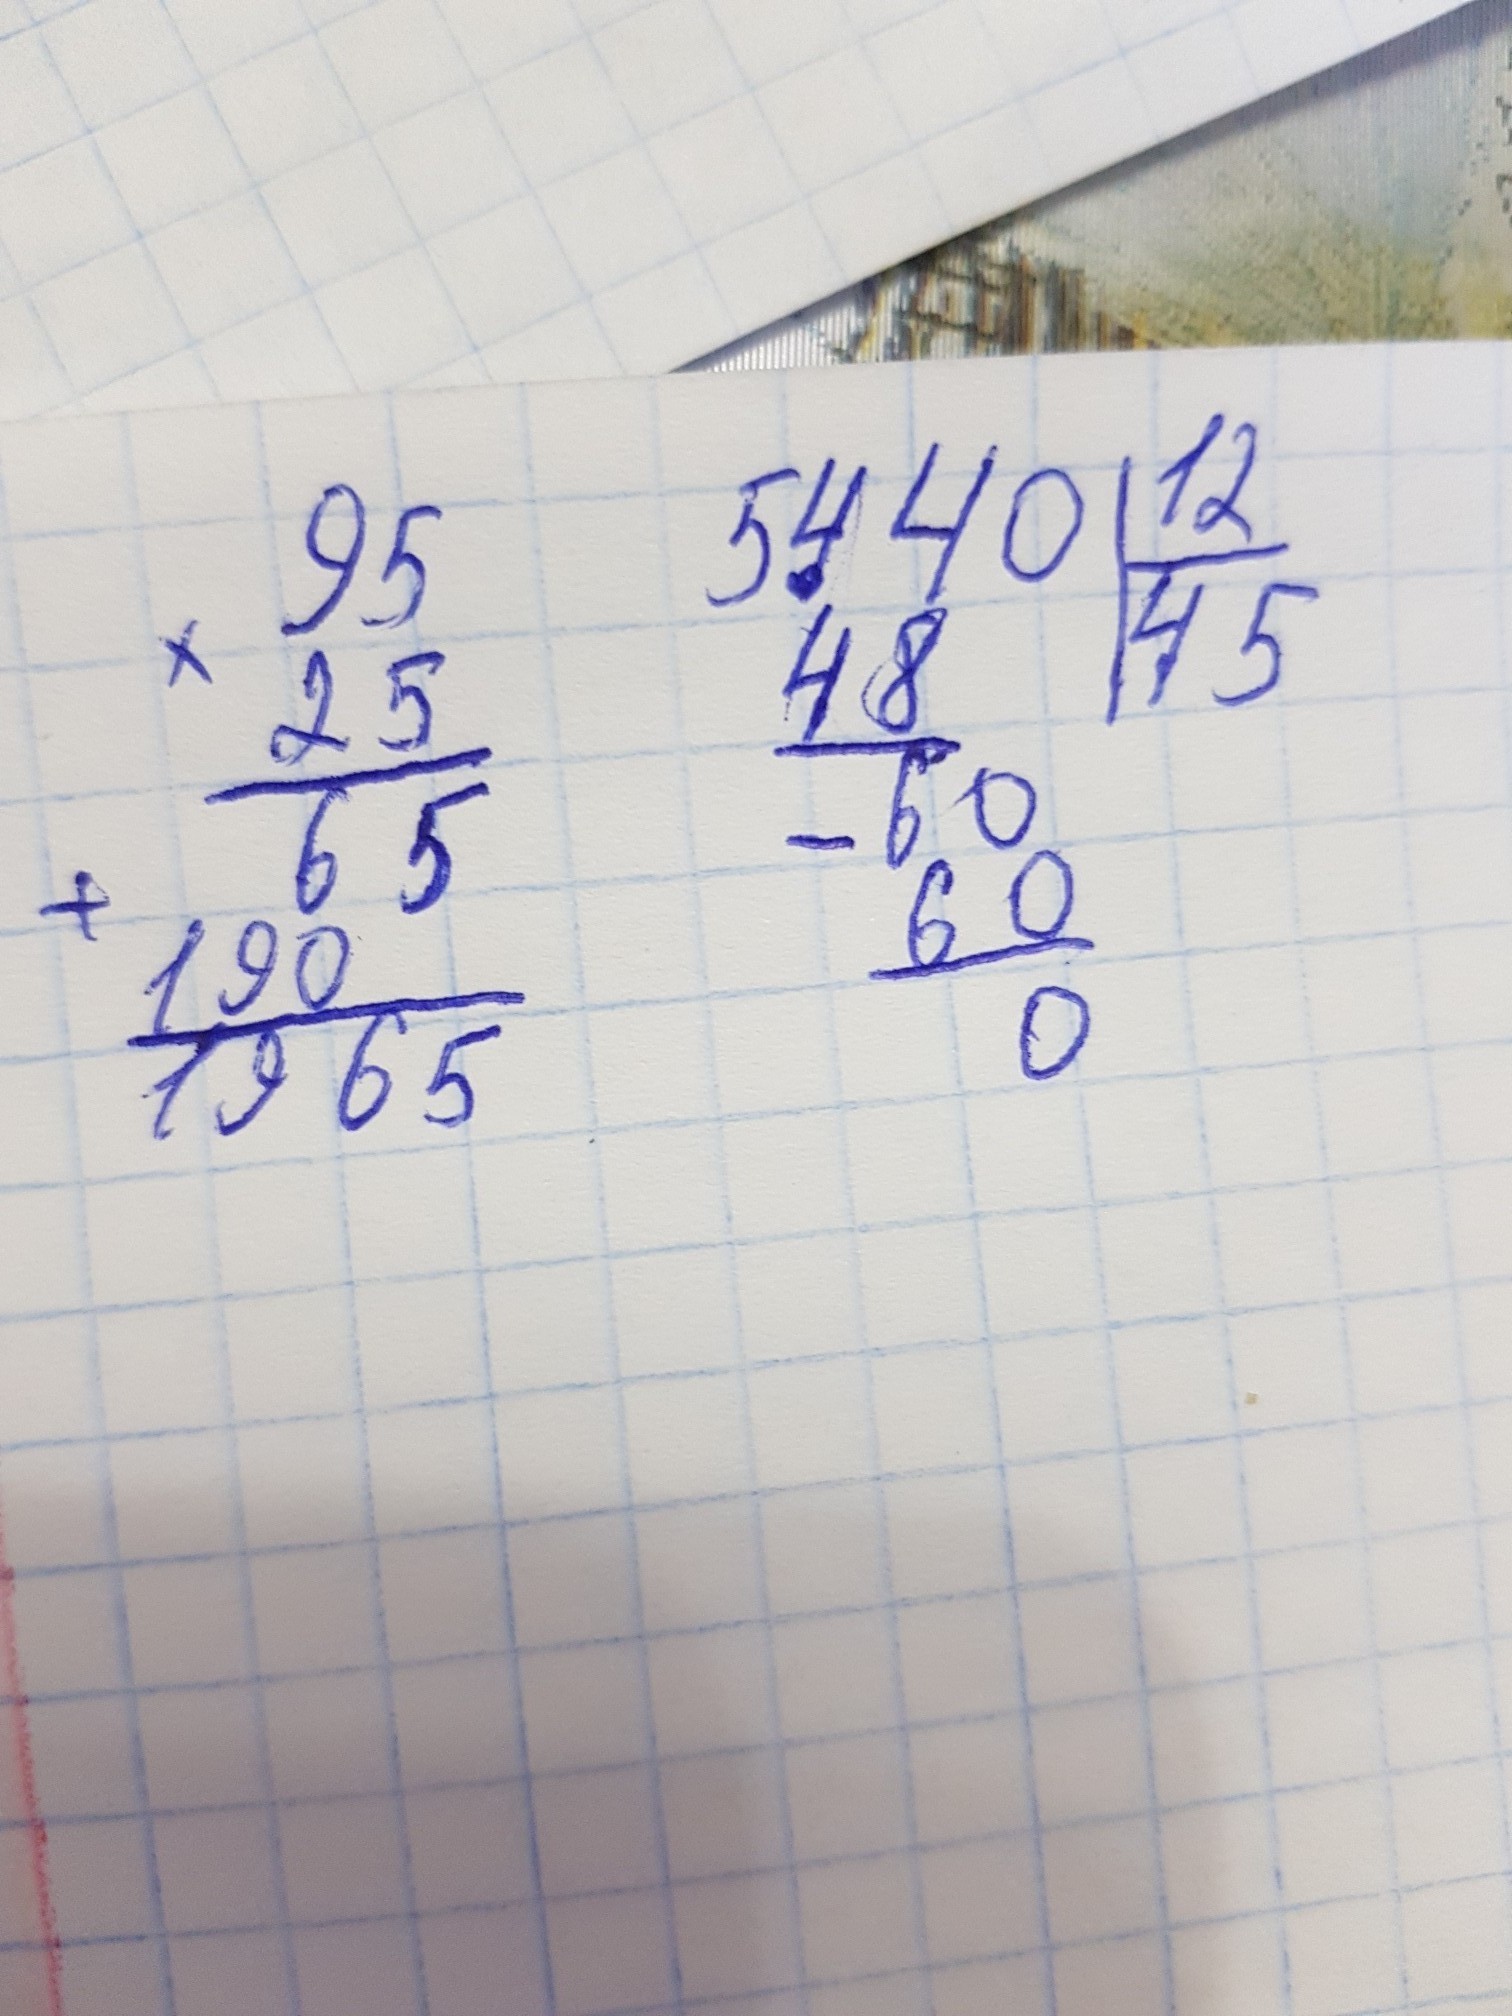 95
× 25
65
+ 190
1965
5440 | 12
48 | 45
- 60
60
0